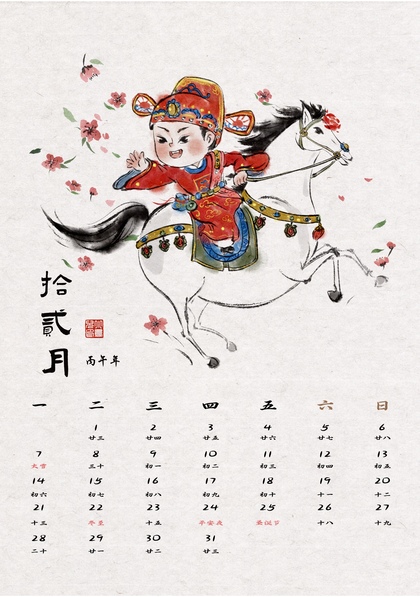 拾貳月
丙午年
一 二 三 四 五 六 日
1 2 3 4 5 6
廿三 廿四 廿五 廿六 廿七 廿八
7 8 9 10 11 12 13
大雪 三十 初一 初二 初三 初四 初五
14 15 16 17 18 19 20
初六 初七 初八 初九 初十 十一 十二
21 22 23 24 25 26 27
十三 冬至 十五 平安夜 圣诞节 十八 十九
28 29 30 31
二十 廿一 廿二 廿三